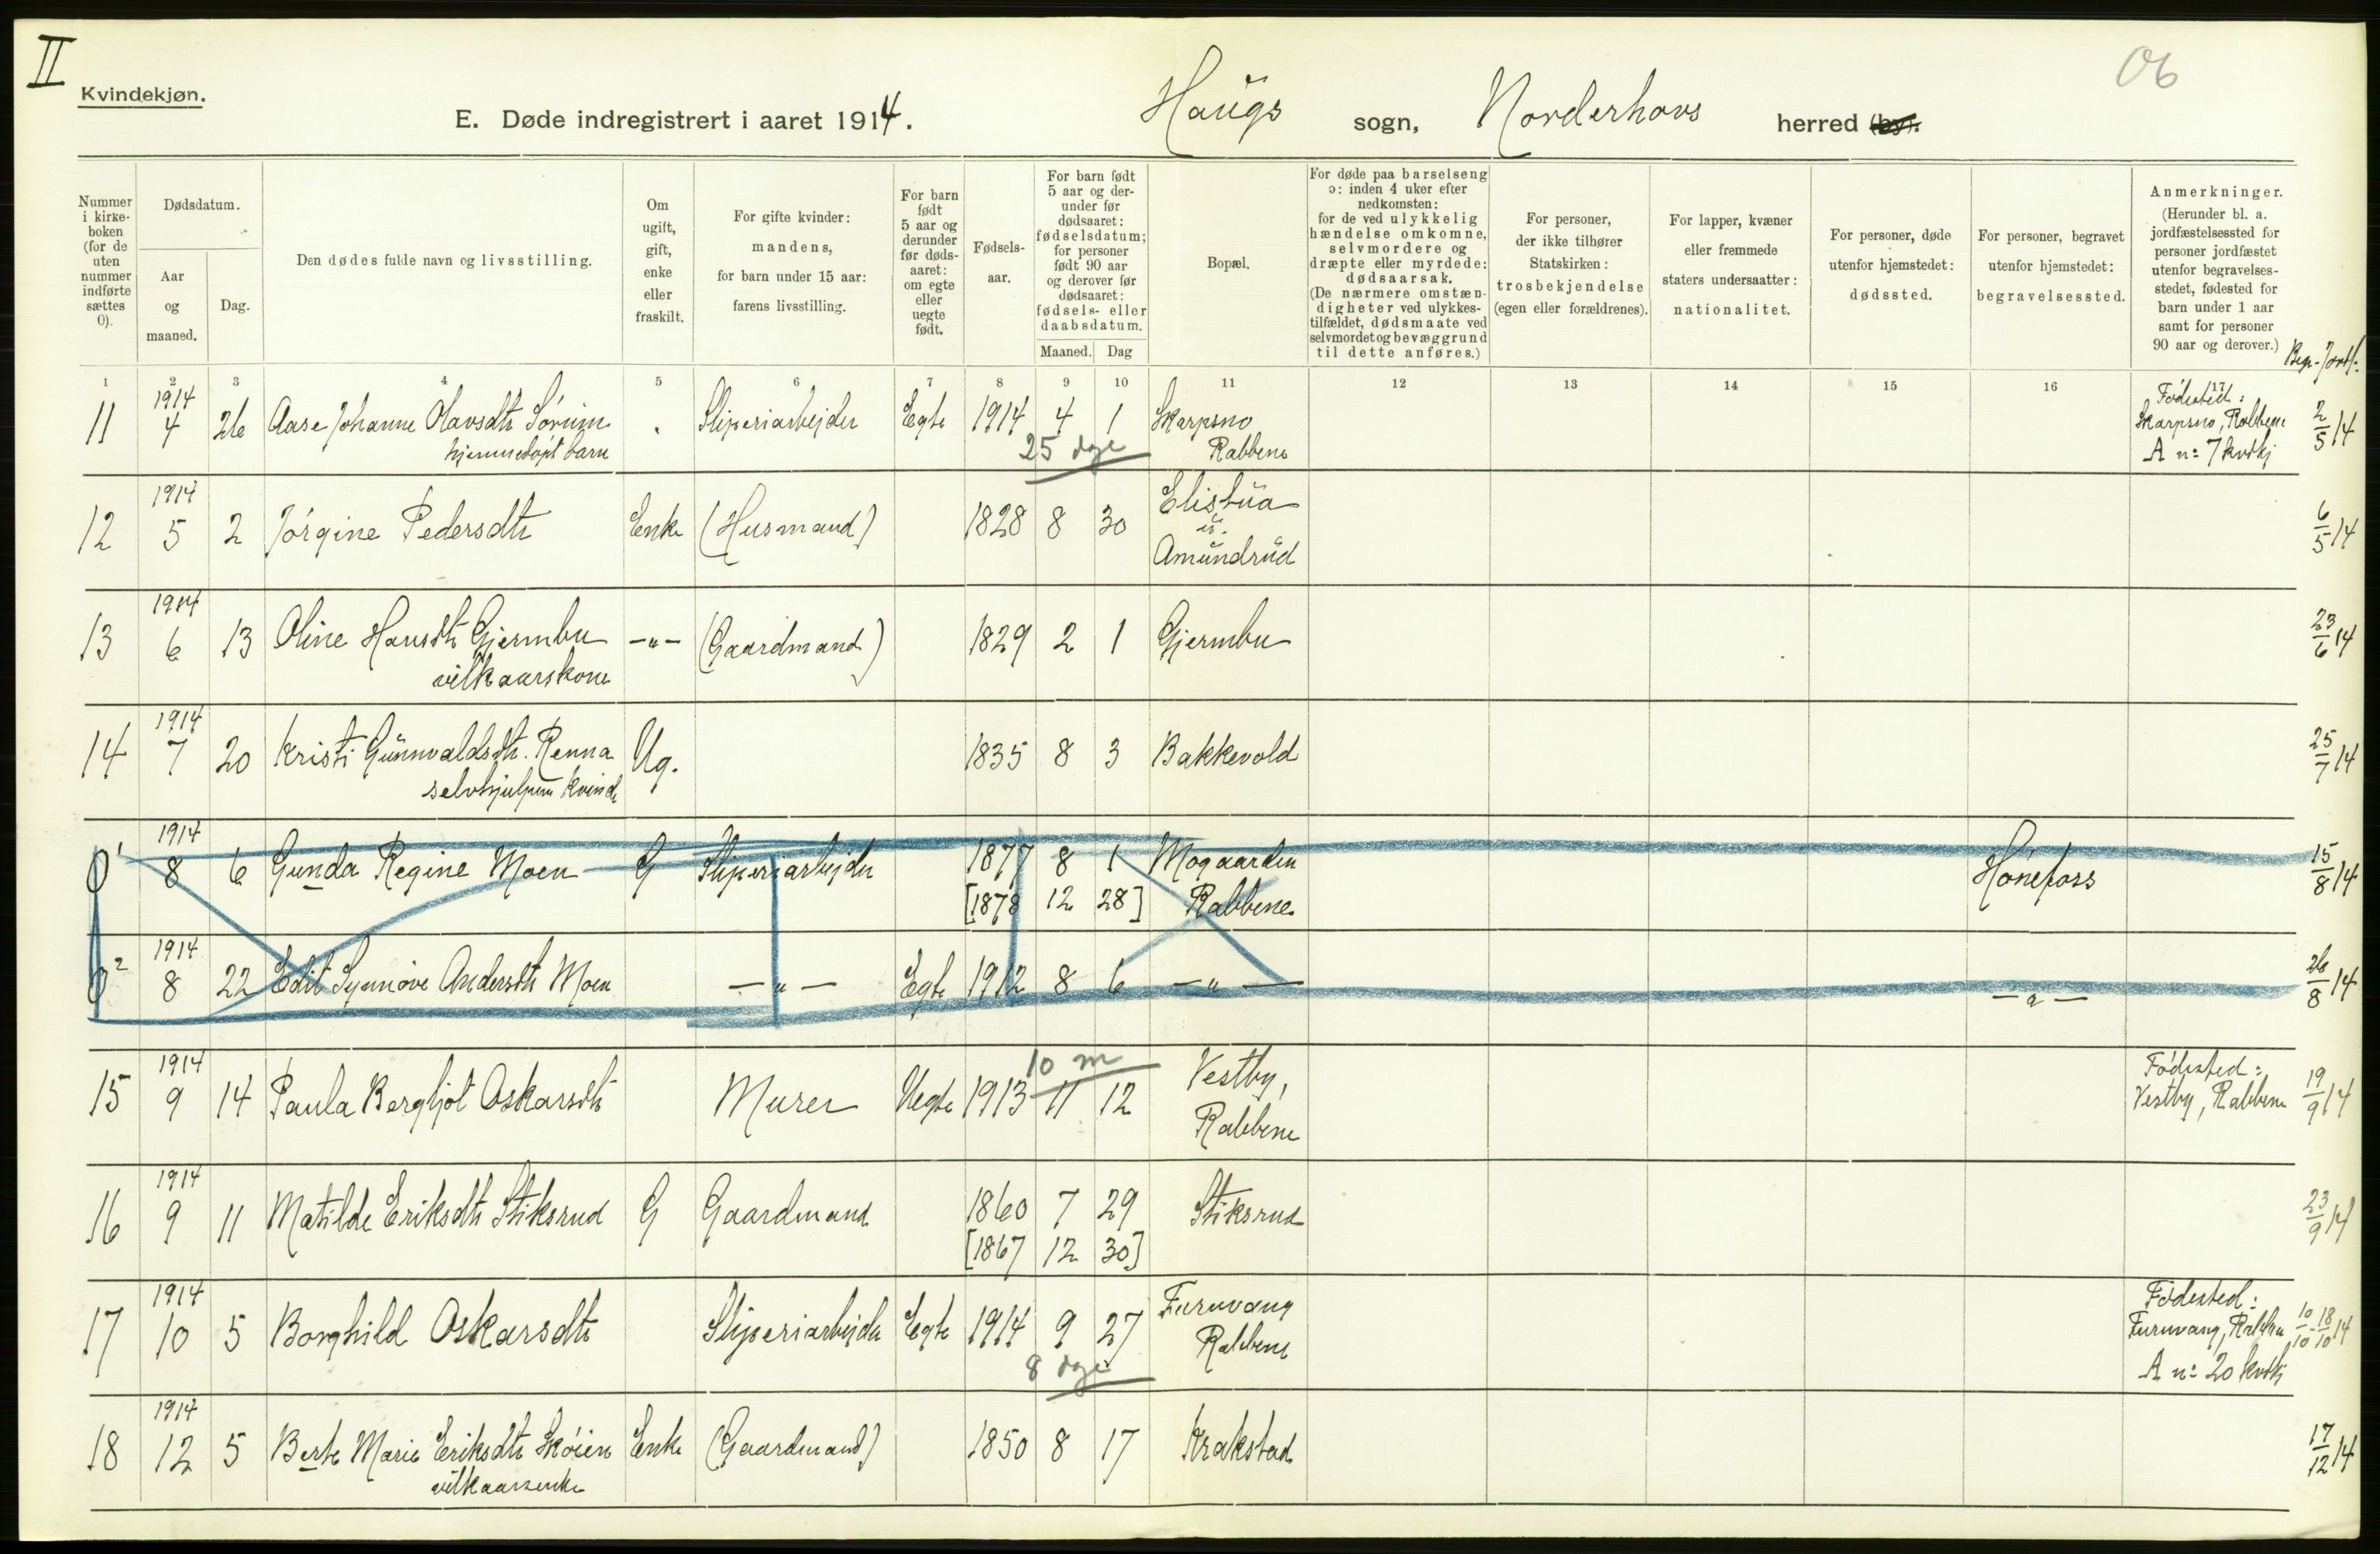 II
Kvindekjøn.
E. Døde indregistrert i aaret 1914.
Haugs sogn, Norderhovs herred (by).
06
Nummer i kirkeboken (for de uten nummer indførte sættes 0).
Dødsdatum.
Aar og maaned.
Dag.
Den dødes fulde navn og livsstilling.
Om ugift, gift, enke eller fraskilt.
For gifte kvinder: mandens, for barn under 15 aar: farens livsstilling.
For barn født 5 aar og derunder før dødsaaret: om egte eller uegte født.
Fødselsaar.
For barn født 5 aar og derunder før dødsaaret: fødselsdatum; for personer født 90 aar og derover før dødsaaret: fødsels- eller daabsdatum.
Maaned. Dag
Bopæl.
For døde paa barselseng ɔ: inden 4 uker efter nedkomsten: for de ved ulykkelig hændelse omkomne, selvmordere og dræpte eller myrdede: dødsaarsak. (De nærmere omstændigheter ved ulykkestilfældet, dødsmaate ved selvmordet og bevæggrund til dette anføres.)
For personer, der ikke tilhører Statskirken: trosbekjendelse (egen eller forældrenes).
For lapper, kvæner eller fremmede staters undersaatter: nationalitet.
For personer, døde utenfor hjemstedet: dødssted.
For personer, begravet utenfor hjemstedet: begravelsessted.
Anmerkninger. (Herunder bl. a. jordfæstelsessted for personer jordfæstet utenfor begravelsesstedet, fødested for barn under 1 aar samt for personer 90 aar og derover.)
Begr.-Jordf:
1 2 3 4 5 6 7 8 9 10 11 12 13 14 15 16 17
11 1914 4 26 Aase Johanne Olavsdtr Sørum . Sliperiarbejder Egte 1914 4 1 Skarpsno Fødested:
hjemmedøpt barn 25 dge Rabbene Skarpsno, Rabbene 2/5 14
A n: 7 kvkj
12 1914 5 2 Jørgine Pedersdtr Enke (Husmand) 1828 8 30 Elistua 6/5 14
u.
Amundrud
13 1914 6 13 Oline Hansdtr Gjermbu -"- (Gaardmand) 1829 2 1 Gjermbu 23/6 14
vilkaarskone
14 1914 7 20 Kristi Gunnvaldsdtr. Renna Ug. 1835 8 3 Bakkevold 25/7 14
selvhjulpen kvinde
0¹ 1914 8 6 Gunda Regine Moen G Sliperiarbejder 1877 8 1 Mogaarden Hønefoss 15/8 14
[1878 12 28] Rabbene
0² 1914 8 22 Edit Synnøve Andersdtr Moen -"- Egte 1912 8 6 -"- -"- 26/8 14
15 1914 9 14 Paula Bergljot Oskarsdtr Murer Uegte 1913 11 12 Vestby, Fødested:
10 m Rabbene Vestby, Rabbene 19/9 14
16 1914 9 11 Matilde Eriksdtr Stiksrud G Gaardmand 1860 7 29 Stiksrud 23/9 14
[1867 12 30]
17 1914 10 5 Borghild Oskarsdtr Sliperiarbejder Egte 1914 9 27 Furuvang Fødested:
8 dge Rabbene Furuvang, Rabbene 10/10 - 18/10 14
A n: 20 kvkj
18 1914 12 5 Berte Marie Eriksdtr Skøien Enke (Gaardmand) 1850 8 17 Krakstad 17/12 14
vilkaarsenke